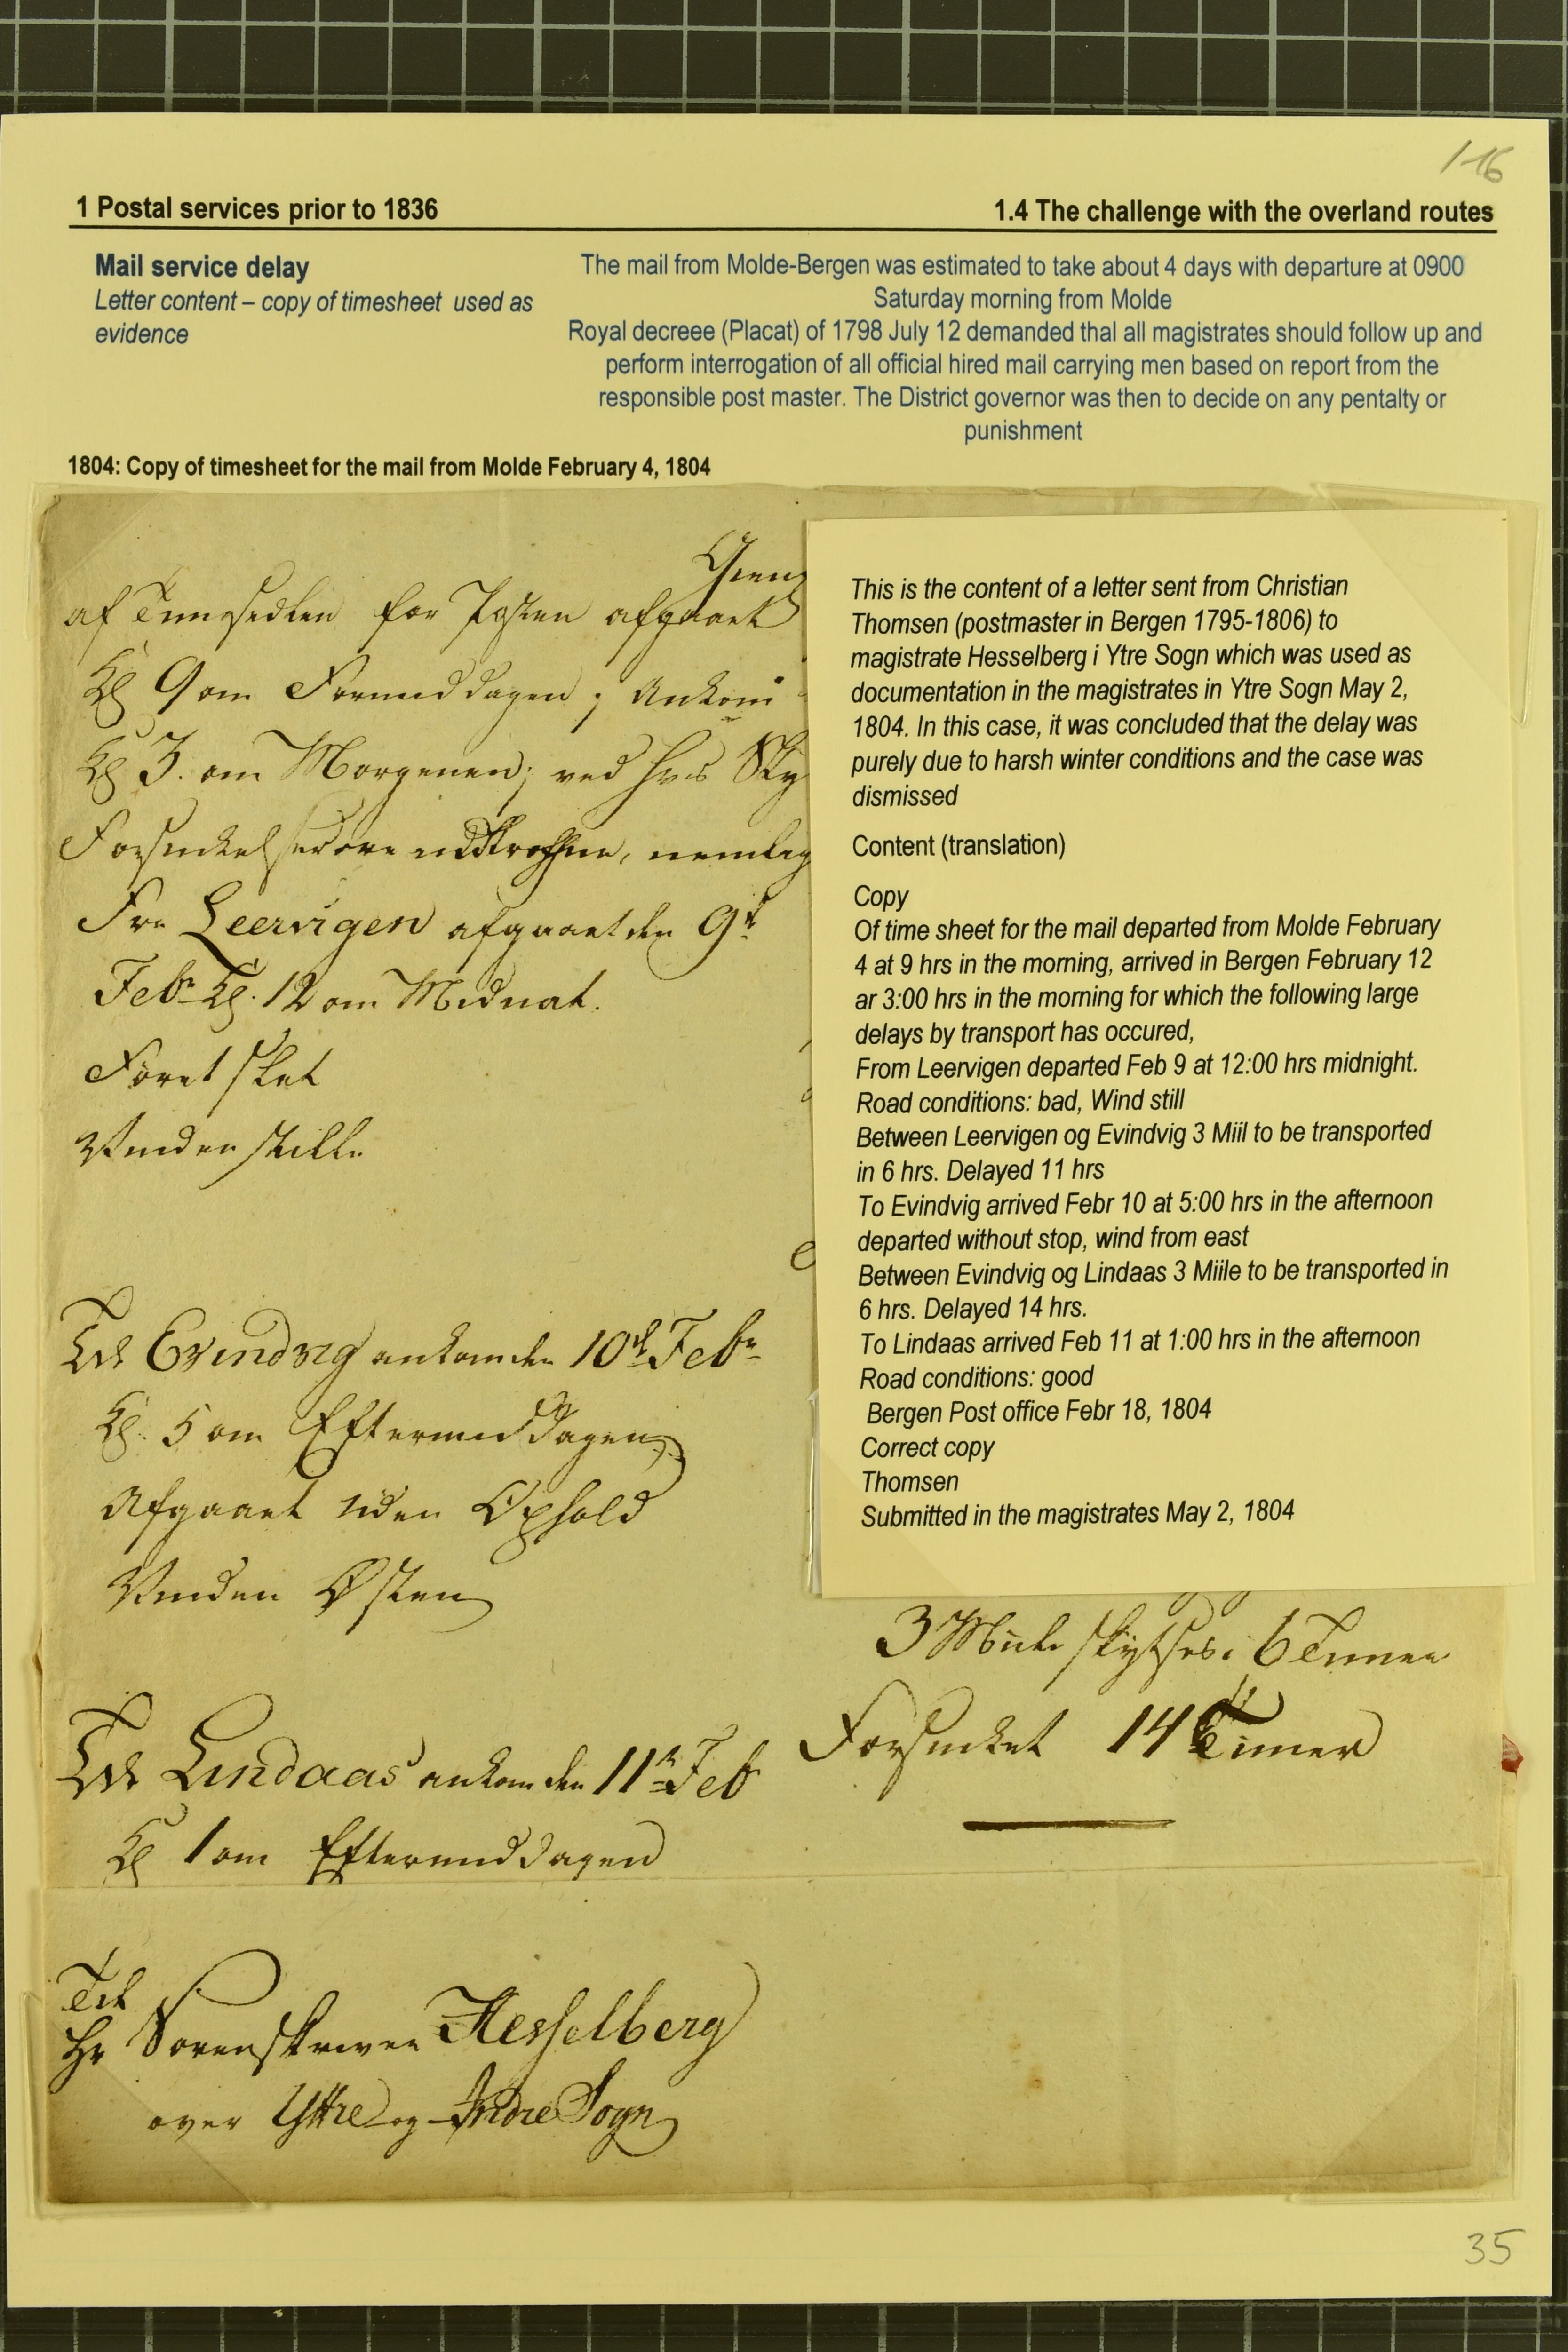 1-16
1 Postal services prior to 1836
1.4 The challenge with the overland routes
Mail service delay
Letter content – copy of timesheet used as
evidence
The mail from Molde-Bergen was estimated to take about 4 days with departure at 0900
Saturday morning from Molde
Royal decreee (Placat) of 1798 July 12 demanded thal all magistrates should follow up and
perform interrogation of all official hired mail carrying men based on report from the
responsible post master. The District governor was then to decide on any pentalty or
punishment
1804: Copy of timesheet for the mail from Molde February 4, 1804
af Timesedlen for Posten afgaaet
Kl 9 om Formiddagen; Ankom
Kl 3. om Morgenen; ved hvis Sky
nemlig
Fra Leervigen afgaaet den 9de
Febr Kl. 12 om Midnat.
Føret slet
Vinden stille
Til Evindvig ankom den 10de Febr
Kl. 5 om Eftermiddagen
Afgaaet uden Ophold
Vinden Østen
Til Lindaas ankom den 11te Feb
Kl 1 om Eftermiddagen
3 Miile skydses i 6 Timer
Forsinket 14 Timer
Til
Hr Sorenskriver Hesselberg
over Yttre og Indre Sogn
This is the content of a letter sent from Christian
Thomsen (postmaster in Bergen 1795-1806) to
magistrate Hesselberg i Ytre Sogn which was used as
documentation in the magistrates in Ytre Sogn May 2,
1804. In this case, it was concluded that the delay was
purely due to harsh winter conditions and the case was
dismissed
Content (translation)
Copy
Of time sheet for the mail departed from Molde February
4 at 9 hrs in the morning, arrived in Bergen February 12
ar 3:00 hrs in the morning for which the following large
delays by transport has occured,
From Leervigen departed Feb 9 at 12:00 hrs midnight.
Road conditions: bad, Wind still
Between Leervigen og Evindvig 3 Miil to be transported
in 6 hrs. Delayed 11 hrs
To Evindvig arrived Febr 10 at 5:00 hrs in the afternoon
departed without stop, wind from east
Between Evindvig og Lindaas 3 Miile to be transported in
6 hrs. Delayed 14 hrs.
To Lindaas arrived Feb 11 at 1:00 hrs in the afternoon
Road conditions: good
Bergen Post office Febr 18, 1804
Correct copy
Thomsen
Submitted in the magistrates May 2, 1804
35